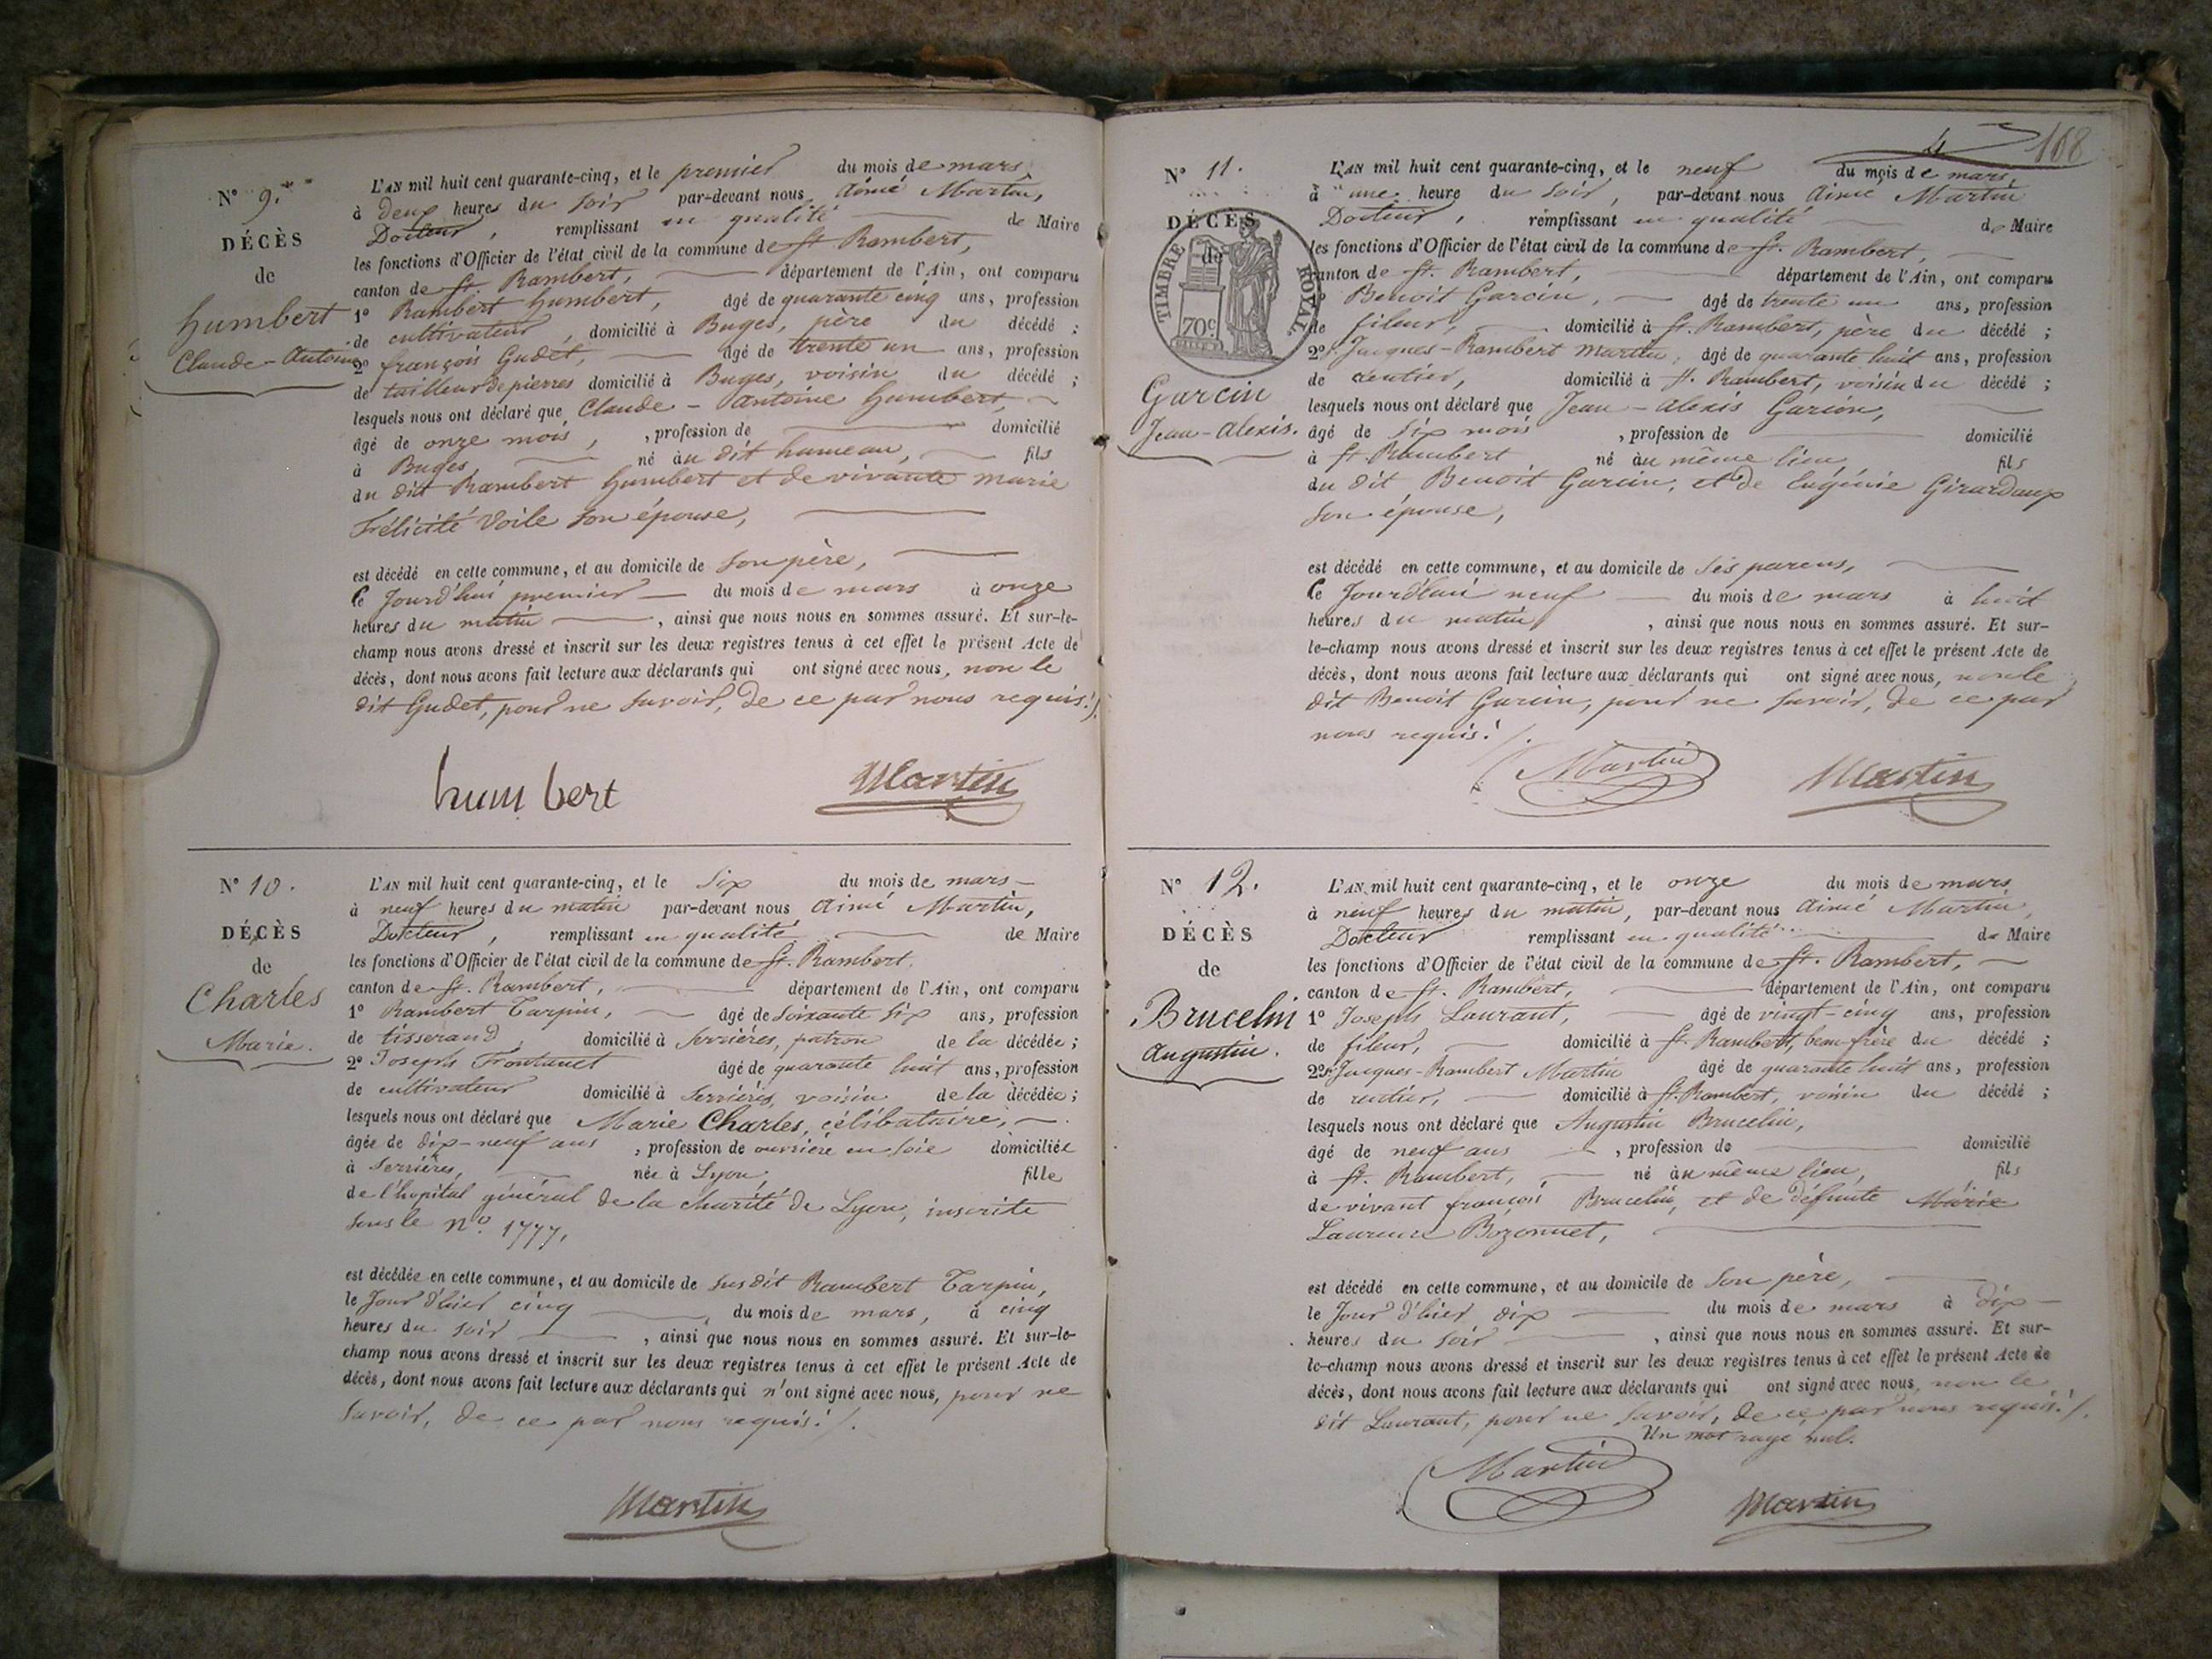 N° 9.
DÉCÈS
de
humbert
Claude-Antoine
L'AN mil huit cent quarante-cinq, et le premier du mois de mars,
à deux heures du soir par-devant nous Aimé Martin,
Docteur, remplissant en qualité de Maire
les fonctions d'Officier de l'état civil de la commune de St. Rambert,
canton de St. Rambert, département de l'Ain, ont comparu
1° Rambert humbert, âgé de quarante cinq ans, profession
de cultivateur, domicilié à Buges, père du décédé ;
2° françois Gudet, âgé de trente un ans, profession
de tailleur de pierres domicilié à Buges, voisin du décédé ;
lesquels nous ont déclaré que Claude-Antoine humbert,
âgé de onze mois, , profession de domicilié
à Buges, né au dit hameau, fils
du dit Rambert humbert et de vivante marie
félicité Voile son épouse,
est décédé en cette commune, et au domicile de son père,
le Jourd'hui premier du mois de mars à onze
heures du matin , ainsi que nous nous en sommes assuré. Et sur-le-
champ nous avons dressé et inscrit sur les deux registres tenus à cet effet le présent Acte de
décès, dont nous avons fait lecture aux déclarants qui ont signé avec nous, non le
dit Gudet, pour ne savoir, de ce par nous requis./.
humbert Martin
N° 10.
DÉCÈS
de
Charles
Marie.
L'AN mil huit cent quarante-cinq, et le six du mois de mars
à neuf heures du matin par-devant nous Aimé Martin,
Docteur, remplissant en qualité de Maire
les fonctions d'Officier de l'état civil de la commune de St. Rambert.
canton de St. Rambert, département de l'Ain, ont comparu
1° Rambert Tarpin, âgé de soixante six ans, profession
de tisserand, domicilié à Serrières, patron de la décédée ;
2° Joseph âgé de quarante huit ans, profession
de cultivateur domicilié à Serrières, voisin de la décédée ;
lesquels nous ont déclaré que Marie Charles, célibataire,
âgée de dix-neuf ans , profession de ouvrière en soie domiciliée
à Serrières, née à Lyon, fille
de l'hopital général de la charité de Lyon, inscrite
sous le N° 1777,
est décédée en cette commune, et au domicile de susdit Rambert Tarpin,
le Jour d'hier cinq du mois de mars, à cinq
heures du soir , ainsi que nous nous en sommes assuré. Et sur-le-
champ nous avons dressé et inscrit sur les deux registres tenus à cet effet le présent Acte de
décès, dont nous avons fait lecture aux déclarants qui n'ont signé avec nous, pour ne
savoir, de ce par nous requis./.
Martin
4 168
N° 11.
DÉCÈS
de
TIMBRE ROYAL.
70c
Garcin
Jean-Alexis.
L'AN mil huit cent quarante-cinq, et le neuf du mois de mars,
à une heure du soir, par-devant nous Aimé Martin
Docteur, remplissant en qualité de Maire
les fonctions d'Officier de l'état civil de la commune de St. Rambert,
canton de St. Rambert, département de l'Ain, ont comparu
1° Benoit Garcin, âgé de trente un ans, profession
de fileur, domicilié à St. Rambert, père du décédé ;
2° Jacques-Rambert Martin, âgé de quarante huit ans, profession
de rentier, domicilié à St. Rambert, voisin du décédé ;
lesquels nous ont déclaré que Jean-Alexis Garcin,
âgé de six mois , profession de domicilié
à St. Rambert né au même lieu, fils
du dit Benoit Garcin, et de Eugénie Girardaux
son épouse,
est décédé en cette commune, et au domicile de ses parens,
le Jourd'hui neuf du mois de mars à huit
heures du matin , ainsi que nous nous en sommes assuré. Et sur-
le-champ nous avons dressé et inscrit sur les deux registres tenus à cet effet le présent Acte de
décès, dont nous avons fait lecture aux déclarants qui ont signé avec nous, non le
dit Benoit Garcin, pour ne savoir, de ce par
nous requis./.
Martin Martin
N° 12.
DÉCÈS
de
Brucelin
Augustin.
L'AN mil huit cent quarante-cinq, et le onze du mois de mars
à neuf heures du matin, par-devant nous Aimé Martin,
Docteur remplissant en qualité de Maire
les fonctions d'Officier de l'état civil de la commune de St. Rambert,
canton de St. Rambert, département de l'Ain, ont comparu
1° Joseph Laurant, âgé de vingt-cinq ans, profession
de fileur, domicilié à St. Rambert, beau-frère du décédé ;
2° Jacques-Rambert Martin âgé de quarante huit ans, profession
de rentier, domicilié à St. Rambert, voisin du décédé ;
lesquels nous ont déclaré que Augustin Brucelin,
âgé de neuf ans , profession de domicilié
à St. Rambert, né au même lieu, fils
de vivant françois Brucelin, et de défunte Marie
Laurence Bozonnet,
est décédé en cette commune, et au domicile de son père,
le Jour d'hier dix du mois de mars à dix
heures du soir , ainsi que nous nous en sommes assuré. Et sur-
le-champ nous avons dressé et inscrit sur les deux registres tenus à cet effet le présent Acte de
décès, dont nous avons fait lecture aux déclarants qui ont signé avec nous, non le
dit Laurant, pour ne savoir, de ce par nous requis./.
Un mot rayé nul.
Martin Martin